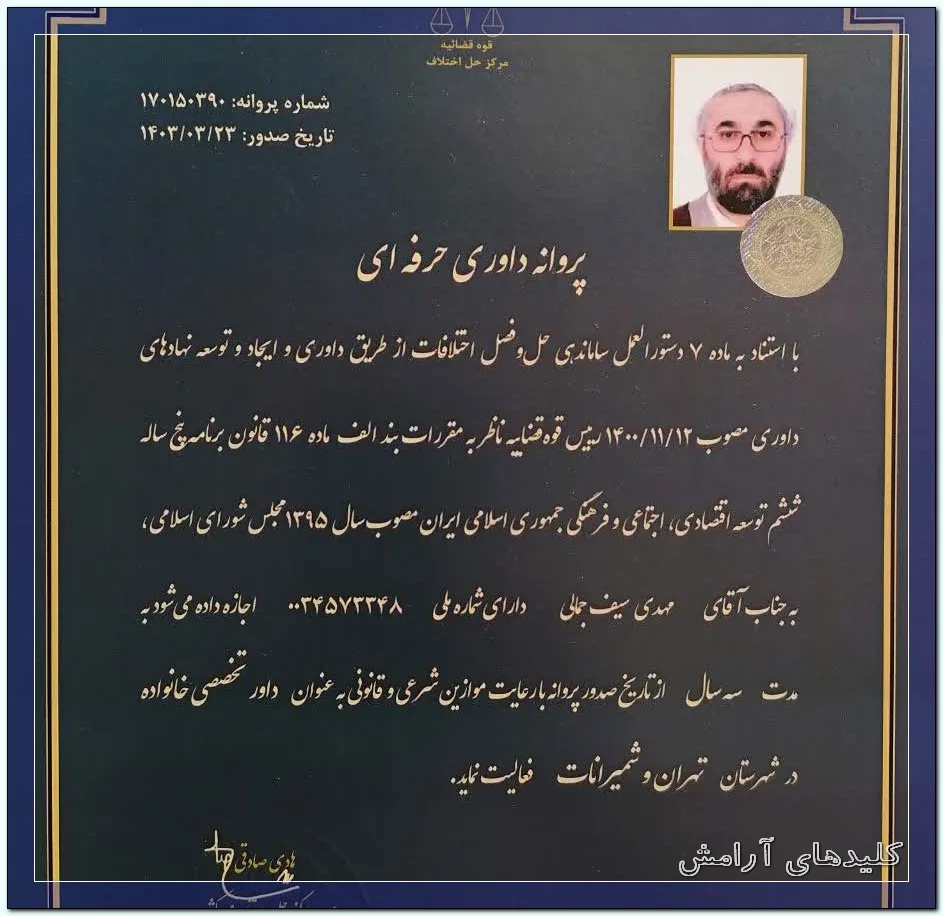 قوه قضائیه
مرکز حل اختلاف
شماره پروانه: ۱۷۰۱۵۰۳۹۰
تاریخ صدور: ۱۴۰۳/۰۳/۲۳
پروانه داوری حرفه ای
با استناد به ماده ۷ دستورالعمل ساماندهی حل و فصل اختلافات از طریق داوری و ایجاد و توسعه نهادهای
داوری مصوب ۱۴۰۰/۱۱/۱۲ رییس قوه قضاییه ناظر به مقررات بند الف ماده ۱۱۶ قانون برنامه پنج ساله
ششم توسعه اقتصادی، اجتماعی و فرهنگی جمهوری اسلامی ایران مصوب سال ۱۳۹۵ مجلس شورای اسلامی،
به جناب آقای مهدی سیف جمالی دارای شماره ملی ۰۰۳۴۵۷۳۳۴۸ اجازه داده می شود به
مدت سه سال از تاریخ صدور پروانه با رعایت موازین شرعی و قانونی به عنوان داور تخصصی خانواده
در شهرستان تهران و شمیرانات فعالیت نماید.
هادی صادقی
کلیدهای آرامش